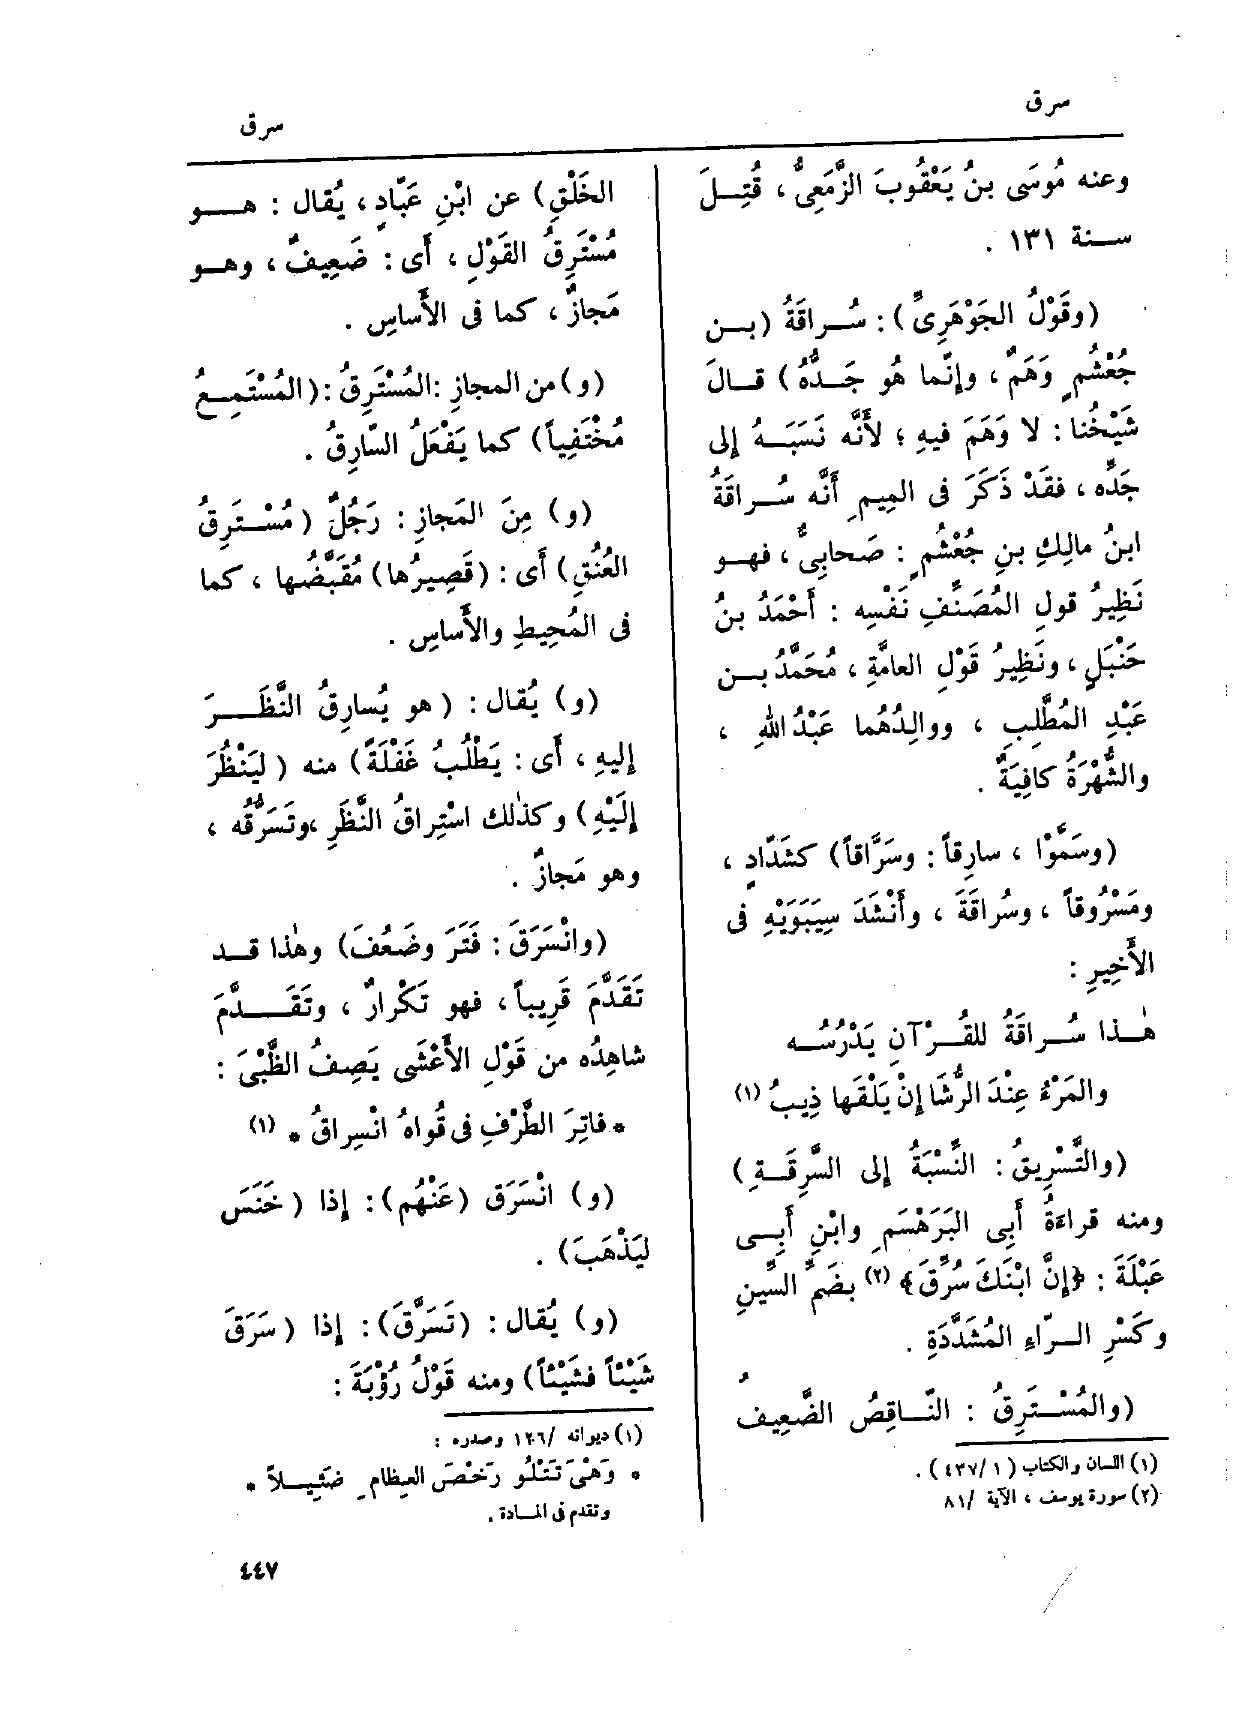 سرق
سرق
وعنه مُوسَى بنُ يَعْقُوبَ الزَّمَعِىُّ ، قُتِـلَ
سـنة ١٣١ .
(وقَوْلُ الجَوْهَرِىِّ) : سُـراقَةُ (بـن
جُعْشُمٍ وَهَمٌ ، وإِنَّما هُو جَـدُّهُ) قـالَ
شَيْخُنا : لا وَهَمَ فيهِ ؛ لأَنَّه نَسَبَـهُ إلى
جَدِّه ، فقَدْ ذَكَرَ فى الميمِ أَنَّه سُـراقَةُ
ابنُ مالِكِ بنِ جُعْشُمٍ : صَحابِىٌّ ، فهـو
نَظِيرُ قولِ المُصَنِّفِ نَفْسِه : أَحْمَدُ بنُ
حَنْبَلٍ ، ونَظِيرُ قَوْلِ العامَّةِ ، مُحَمَّدُ بـن
عَبْدِ المُطَّلِبِ ، ووالِدُهُما عَبْدُ اللهِ ،
والشُّهْرَةُ كافِيَةٌ .
(وسَمَّوْا ، سارِقاً : وسَرَّاقاً) كشَدّادٍ ،
ومَسْرُوقاً ، وسُراقَةَ ، وأَنْشَدَ سِيبَوَيْهِ فى
الأَخِيرِ :
هٰـذا سُـراقَةُ للقُـرْآنِ يَدْرُسُـه
والمَرْءُ عِنْدَ الرُّشَا إِنْ يَلْقَها ذِيبُ (١)
(والتَّسْرِيقُ : النِّسْبَةُ إلى السَّرِقَـةِ)
ومنه قراءَةُ أَبِى البَرَهْسَمِ وابْنِ أَبِـى
عَبْلَةَ : ﴿إِنَّ ابْنَكَ سُرِّقَ﴾ (٢) بضَمِّ السِّينِ
وكَسْرِ الـرّاءِ المُشَدَّدَةِ .
(والمُسْـتَرِقُ : النّـاقِصُ الضَّعِيفُ
(١) اللسان والكتاب (١ /٤٣٧) .
(٢) سورة يوسف ، الآية /٨١
الخَلْقِ) عن ابْنِ عَبّادٍ ، يُقال : هـو
مُسْتَرِقُ القَوْلِ ، أَى : ضَعِيفٌ ، وهـو
مَجازٌ ، كما فى الأَساسِ .
(و) من المجازِ : المُسْتَرِقُ : (المُسْتَمِـعُ
مُخْتَفِياً) كما يَفْعَلُ السّارِقُ .
(و) مِنَ المَجازِ : رَجُلٌ (مُسْـتَرِقُ
العُنُقِ) أَى : (قَصِيرُها) مُقَبَّضُها ، كما
فى المُحِيطِ والأَساسِ .
(و) يُقال : (هو يُسارِقُ النَّظَـرَ
إليهِ ، أَى : يَطْلُبُ غَفْلَةً) منه (ليَنْظُرَ
إِلَيْهِ) وكذٰلك اسْتِراقُ النَّظَرِ ، وتَسَرُّقُه ،
وهو مَجازٌ .
(وانْسَرَقَ : فَتَرَ وضَعُفَ) وهٰذا قـد
تَقَدَّمَ قَرِيباً ، فهو تَكْرارٌ ، وتَقَـدَّمَ
شاهِدُه من قَوْلِ الأَعْشَى يَصِفُ الظَّبْىَ :
* فاتِرَ الطَّرْفِ فى قُواهُ انْسِراقُ * (١)
(و) انْسَرَق (عَنْهُم) : إِذا (خَنَسَ
ليَذْهَبَ) .
(و) يُقال : (تَسَرَّقَ) : إِذا (سَرَقَ
شَيْئاً فشَيْئاً) ومنه قَوْلُ رُؤْبَةَ :
(١) ديوانه /١٢٦ وصدره :
* وَهْىَ تَتْلُو رَخْصَ العِظامِ ضَئِيـلاً *
وتقدم فى المـادة .
٤٤٧